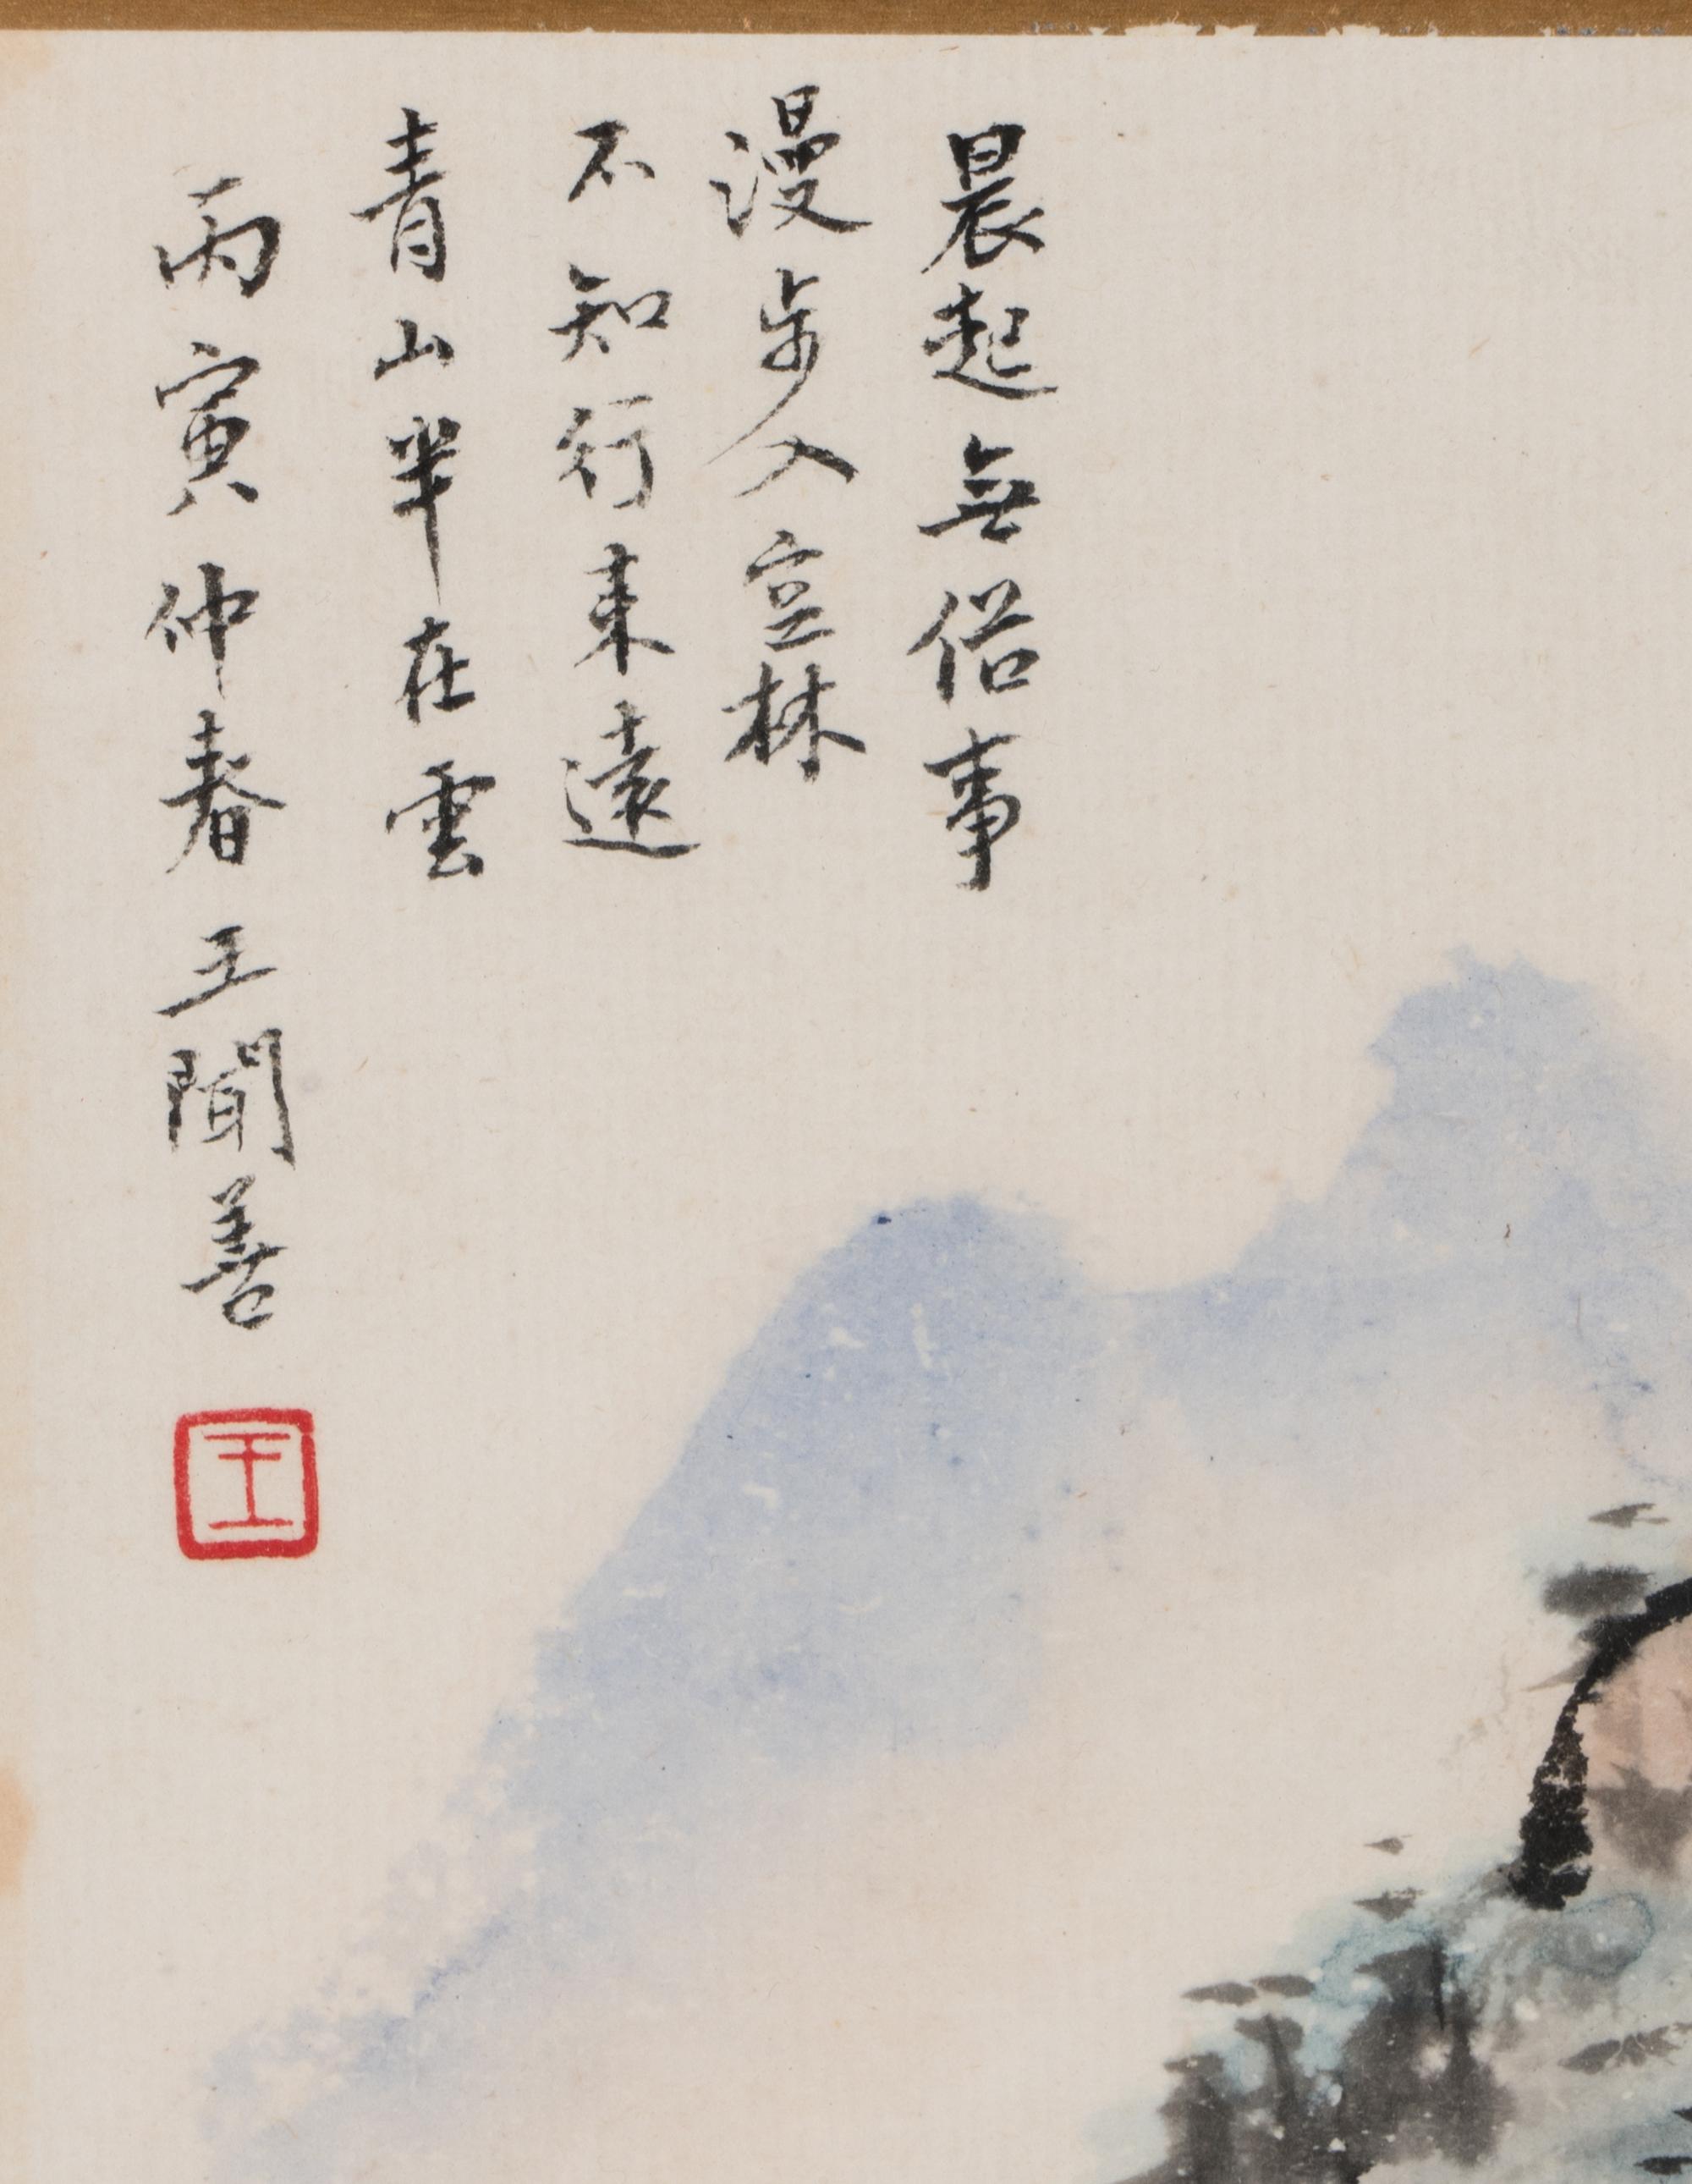 晨起無俗事
漫步入空林
不知行來遠
青山半在雲
丙寅仲春王聞善
王